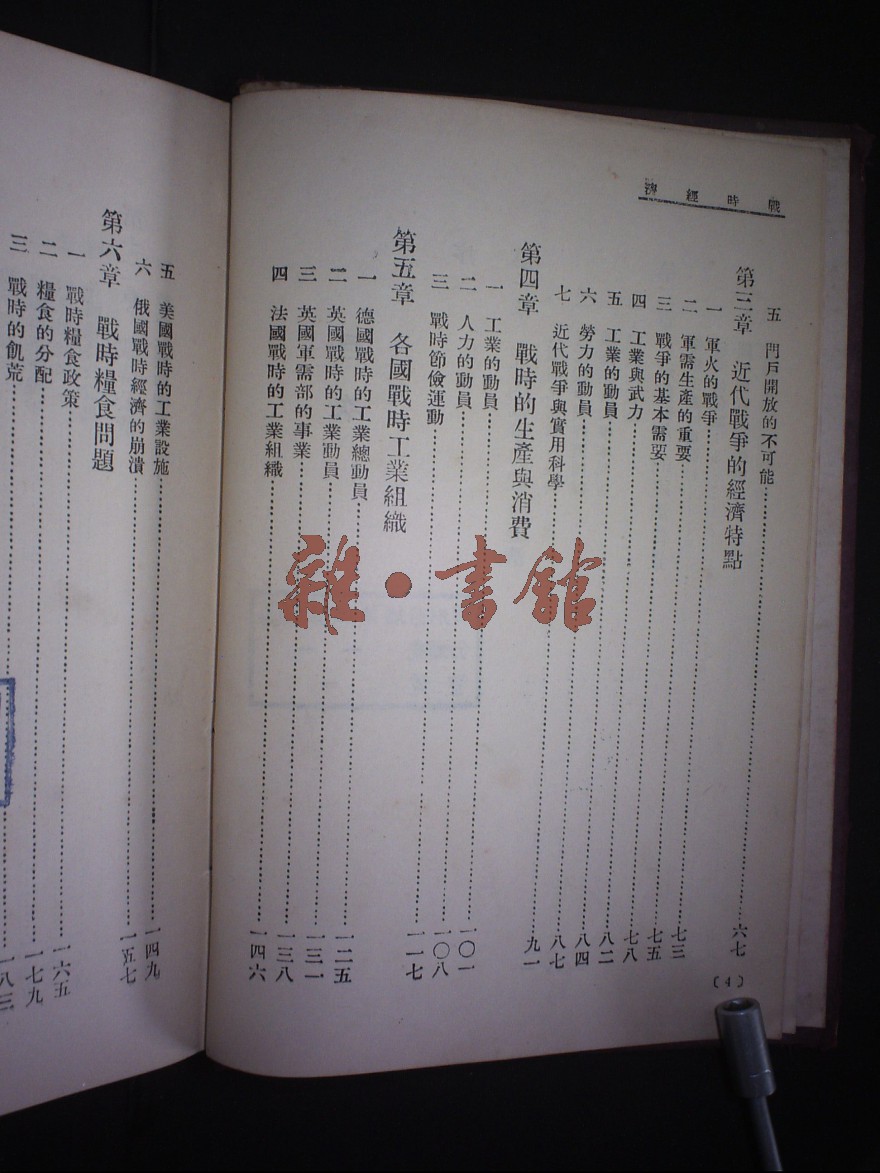 戰時經濟
五 門戶開放的不可能……六七
第三章 近代戰爭的經濟特點
一 軍火的戰爭……七三
二 軍需生產的重要……七五
三 戰爭的基本需要……七八
四 工業與武力……八二
五 工業的動員……八四
六 勞力的動員……八七
七 近代戰爭與實用科學……九一
第四章 戰時的生產與消費
一 工業的動員……一〇一
二 人力的動員……一〇八
三 戰時節儉運動……一一七
第五章 各國戰時工業組織
一 德國戰時的工業總動員……一二五
二 英國戰時的工業動員……一三一
三 英國軍需部的事業……一三八
四 法國戰時的工業組織……一四六
〔4〕
五 美國戰時的工業設施……一四九
六 俄國戰時經濟的崩潰……一五七
第六章 戰時糧食問題
一 戰時糧食政策……一六五
二 糧食的分配……一七九
三 戰時的飢荒……一八三
雜·書館